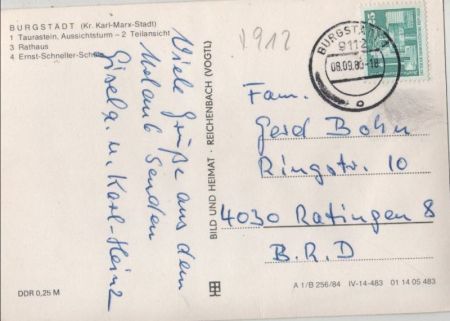 BURGSTÄDT (Kr. Karl-Marx-Stadt)
1 Taurastein, Aussichtsturm – 2 Teilansicht
3 Rathaus
4 Ernst-Schneller-Schule
Viele Grüße aus dem
Urlaub senden
Gisela u. Karl-Heinz
DDR 0,25 M
BILD UND HEIMAT · REICHENBACH (VOGTL)
BURGSTÄDT 1
9112
08.09.86-18
DDR
Fam.
Gerd Bohn
Ringstr. 10
4030 Ratingen 8
B.R.D
A 1/B 256/84 IV-14-483 01 14 05 483